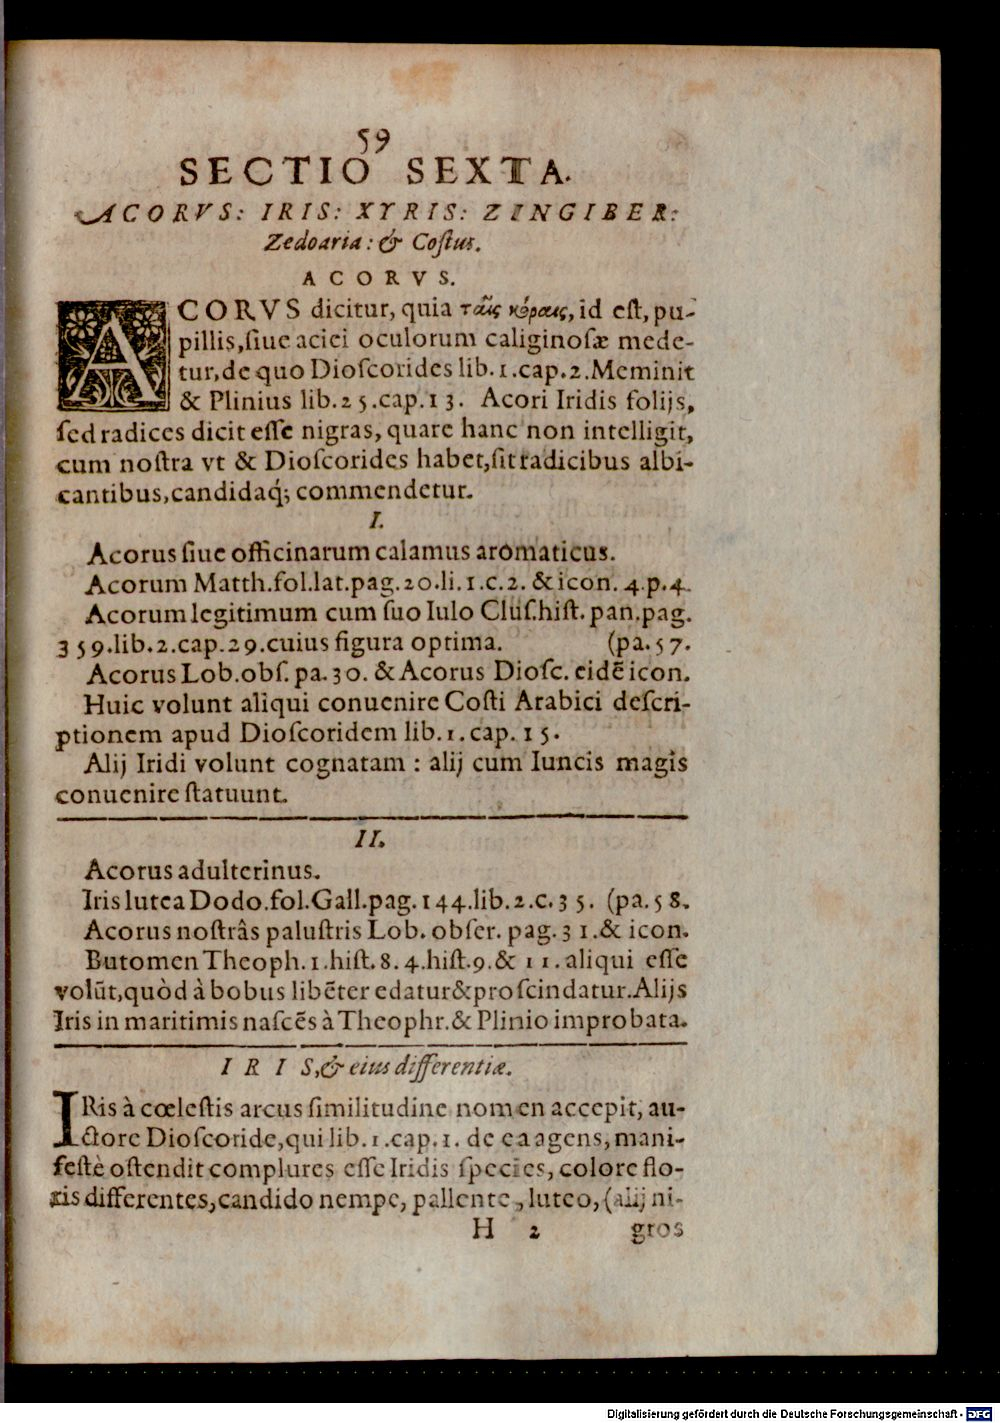 59
SECTIO SEXTA.
ACORVS: IRIS: XYRIS: ZINGIBER:
Zedoaria: & Coſtus.
ACORVS.
ACORVS dicitur, quia ταῖς κόραις, id eſt, pu-
pillis, ſiue aciei oculorum caliginoſæ mede-
tur, de quo Dioſcorides lib. 1. cap. 2. Meminit
& Plinius lib. 25. cap. 13. Acori Iridis folijs,
ſed radices dicit eſſe nigras, quare hanc non intelligit,
cum noſtra vt & Dioſcorides habet, ſit radicibus albi-
cantibus, candidaq́; commendetur.
I.
Acorus ſiue officinarum calamus aromaticus.
Acorum Matth. fol. lat. pag. 20. li. 1. c. 2. & icon. 4. p. 4.
Acorum legitimum cum ſuo Iulo Cluſ. hiſt. pan. pag.
359. lib. 2. cap. 29. cuius figura optima. (pa. 57.
Acorus Lob. obſ. pa. 30. & Acorus Dioſc. eidē icon.
Huic volunt aliqui conuenire Coſti Arabici deſcri-
ptionem apud Dioſcoridem lib. 1. cap. 15.
Alij Iridi volunt cognatam : alij cum Iuncis magis
conuenire ſtatuunt.
II.
Acorus adulterinus.
Iris lutea Dodo. fol. Gall. pag. 144. lib. 2. c. 35. (pa. 58.
Acorus noſtrâs paluſtris Lob. obſer. pag. 31. & icon.
Butomen Theoph. 1. hiſt. 8. 4. hiſt. 9. & 11. aliqui eſſe
volūt, quòd à bobus libēter edatur & proſcindatur. Alijs
Iris in maritimis naſcēs à Theophr. & Plinio improbata.
IRIS, & eius differentiæ.
IRis à cœleſtis arcus ſimilitudine nomen accepit, au-
ctore Dioſcoride, qui lib. 1. cap. 1. de ea agens, mani-
feſtè oſtendit complures eſſe Iridis ſpecies, colore flo-
ris differentes, candido nempe, pallente, luteo, (alij ni-
H 2 gros
Digitalisierung gefördert durch die Deutsche Forschungsgemeinschaft - DFG